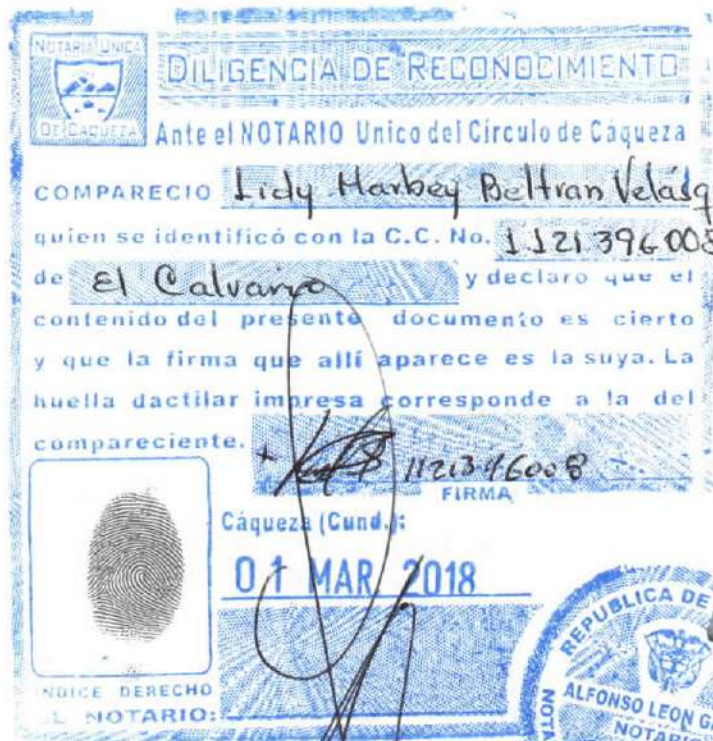 NOTARIA UNICA
DE CAQUEZA
DILIGENCIA DE RECONOCIMIENTO
Ante el NOTARIO Unico del Círculo de Cáqueza
COMPARECIO Lidy Harbey Beltran Velásq
quien se identificó con la C.C. No. 1121396008
de El Calvario y declaro que el
contenido del presente documento es cierto
y que la firma que allí aparece es la suya. La
huella dactilar impresa corresponde a la del
compareciente.
1121396008
FIRMA
Cáqueza (Cund.):
01 MAR 2018
INDICE DERECHO
EL NOTARIO:
REPUBLICA DE
ALFONSO LEON
NOTARIO